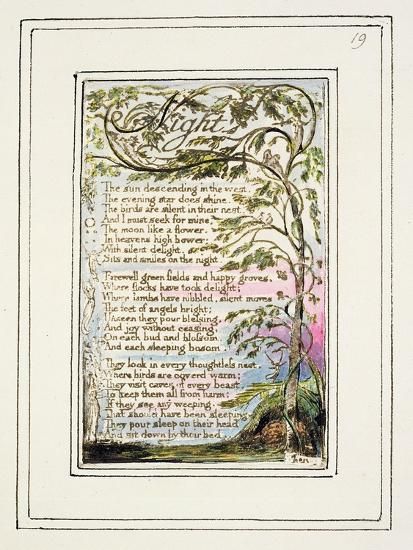 19
Night
The sun descending in the west.
The evening star does shine.
The birds are silent in their nest,
And I must seek for mine,
The moon like a flower,
In heavens high bower;
With silent delight,
Sits and smiles on the night.
Farewell green fields and happy groves,
Where flocks have took delight;
Where lambs have nibbled, silent moves
The feet of angels bright;
Unseen they pour blessing,
And joy without ceasing,
On each bud and blossom,
And each sleeping bosom.
They look in every thoughtless nest,
Where birds are coverd warm;
They visit caves of every beast,
To keep them all from harm;
If they see any weeping,
That should have been sleeping
They pour sleep on their head
And sit down by their bed.
When